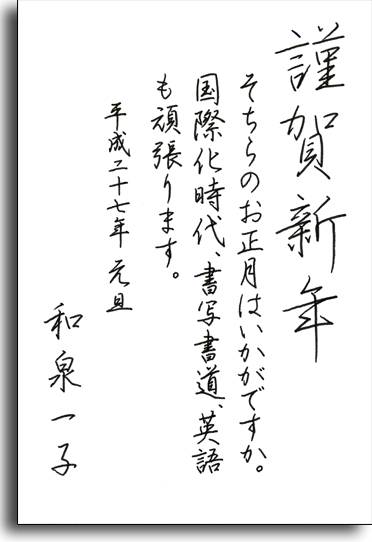 謹賀新年
そちらのお正月はいかがですか。
国際化時代、書写書道、英語
も頑張ります。
平成二十七年 元旦
和泉一子